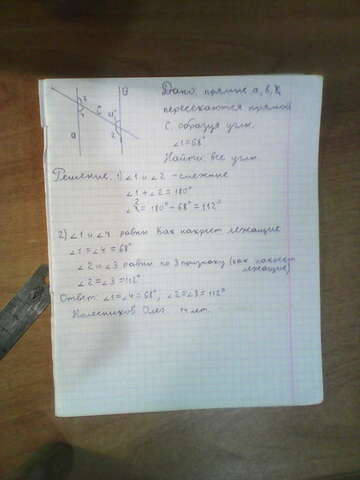 Дано: прямые а, в,
пересекаются прямой
с, образуя углы.
∠1=68°
Найти: все углы.
Решение: 1) ∠1 и ∠2 - смежные
∠1 + ∠2 = 180°
∠2 = 180° - 68° = 112°
2) ∠1 и ∠4 равны как накрест лежащие
∠1 = ∠4 = 68°
∠2 и ∠3 равны по 3 признаку (как накрест
лежащие)
∠2 = ∠3 = 112°
Ответ: ∠1=∠4=68°, ∠2=∠3=112°
Колесников Олег. 14 лет.